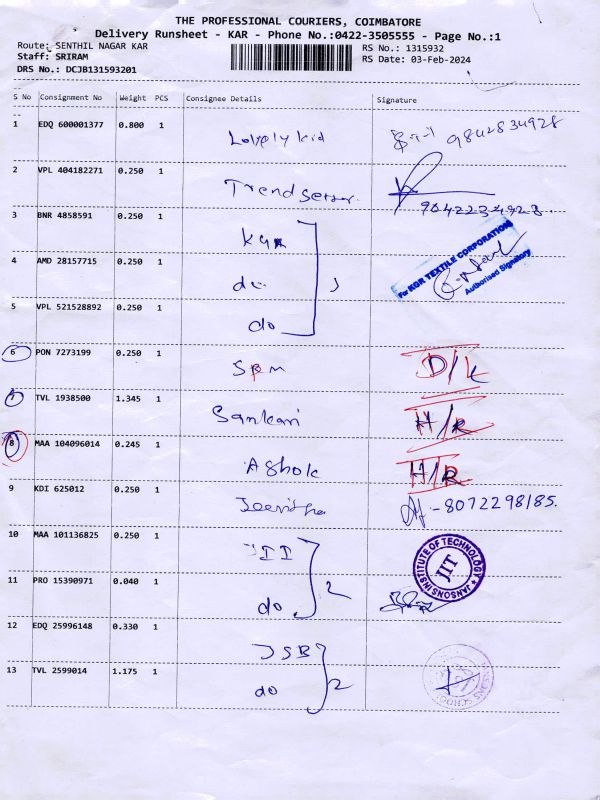 THE PROFESSIONAL COURIERS, COIMBATORE
Delivery Runsheet - KAR - Phone No.:0422-3505555 - Page No.:1
Route: SENTHIL NAGAR KAR RS No.: 1315932
Staff: SRIRAM RS Date: 03-Feb-2024
DRS No.: DCJB131593201
S No Consignment No Weight PCS Consignee Details Signature
1 EDQ 600001377 0.800 1 Lovely kid 9842834928
2 VPL 404182271 0.250 1 Trend Setter. 9042234923.
3 BNR 4858591 0.250 1 KGR
For KGR TEXTILE CORPORATION
4 AMD 28157715 0.250 1 do 3
Authorised Signatory
5 VPL 521528892 0.250 1 do
6 PON 7273199 0.250 1 SPM D/L
7 TVL 1938500 1.345 1 Sankari H/R
8 MAA 104096014 0.245 1 Ashok H/R
9 KDI 625012 0.250 1 Jeevitha - 8072298185.
10 MAA 101136825 0.250 1 JIT
JANSONS INSTITUTE OF TECHNOLOGY
JIT
11 PRO 15390971 0.040 1 do 2
12 EDQ 25996148 0.330 1 JSB
13 TVL 2599014 1.175 1 do 2
JANSONS SCHOOL